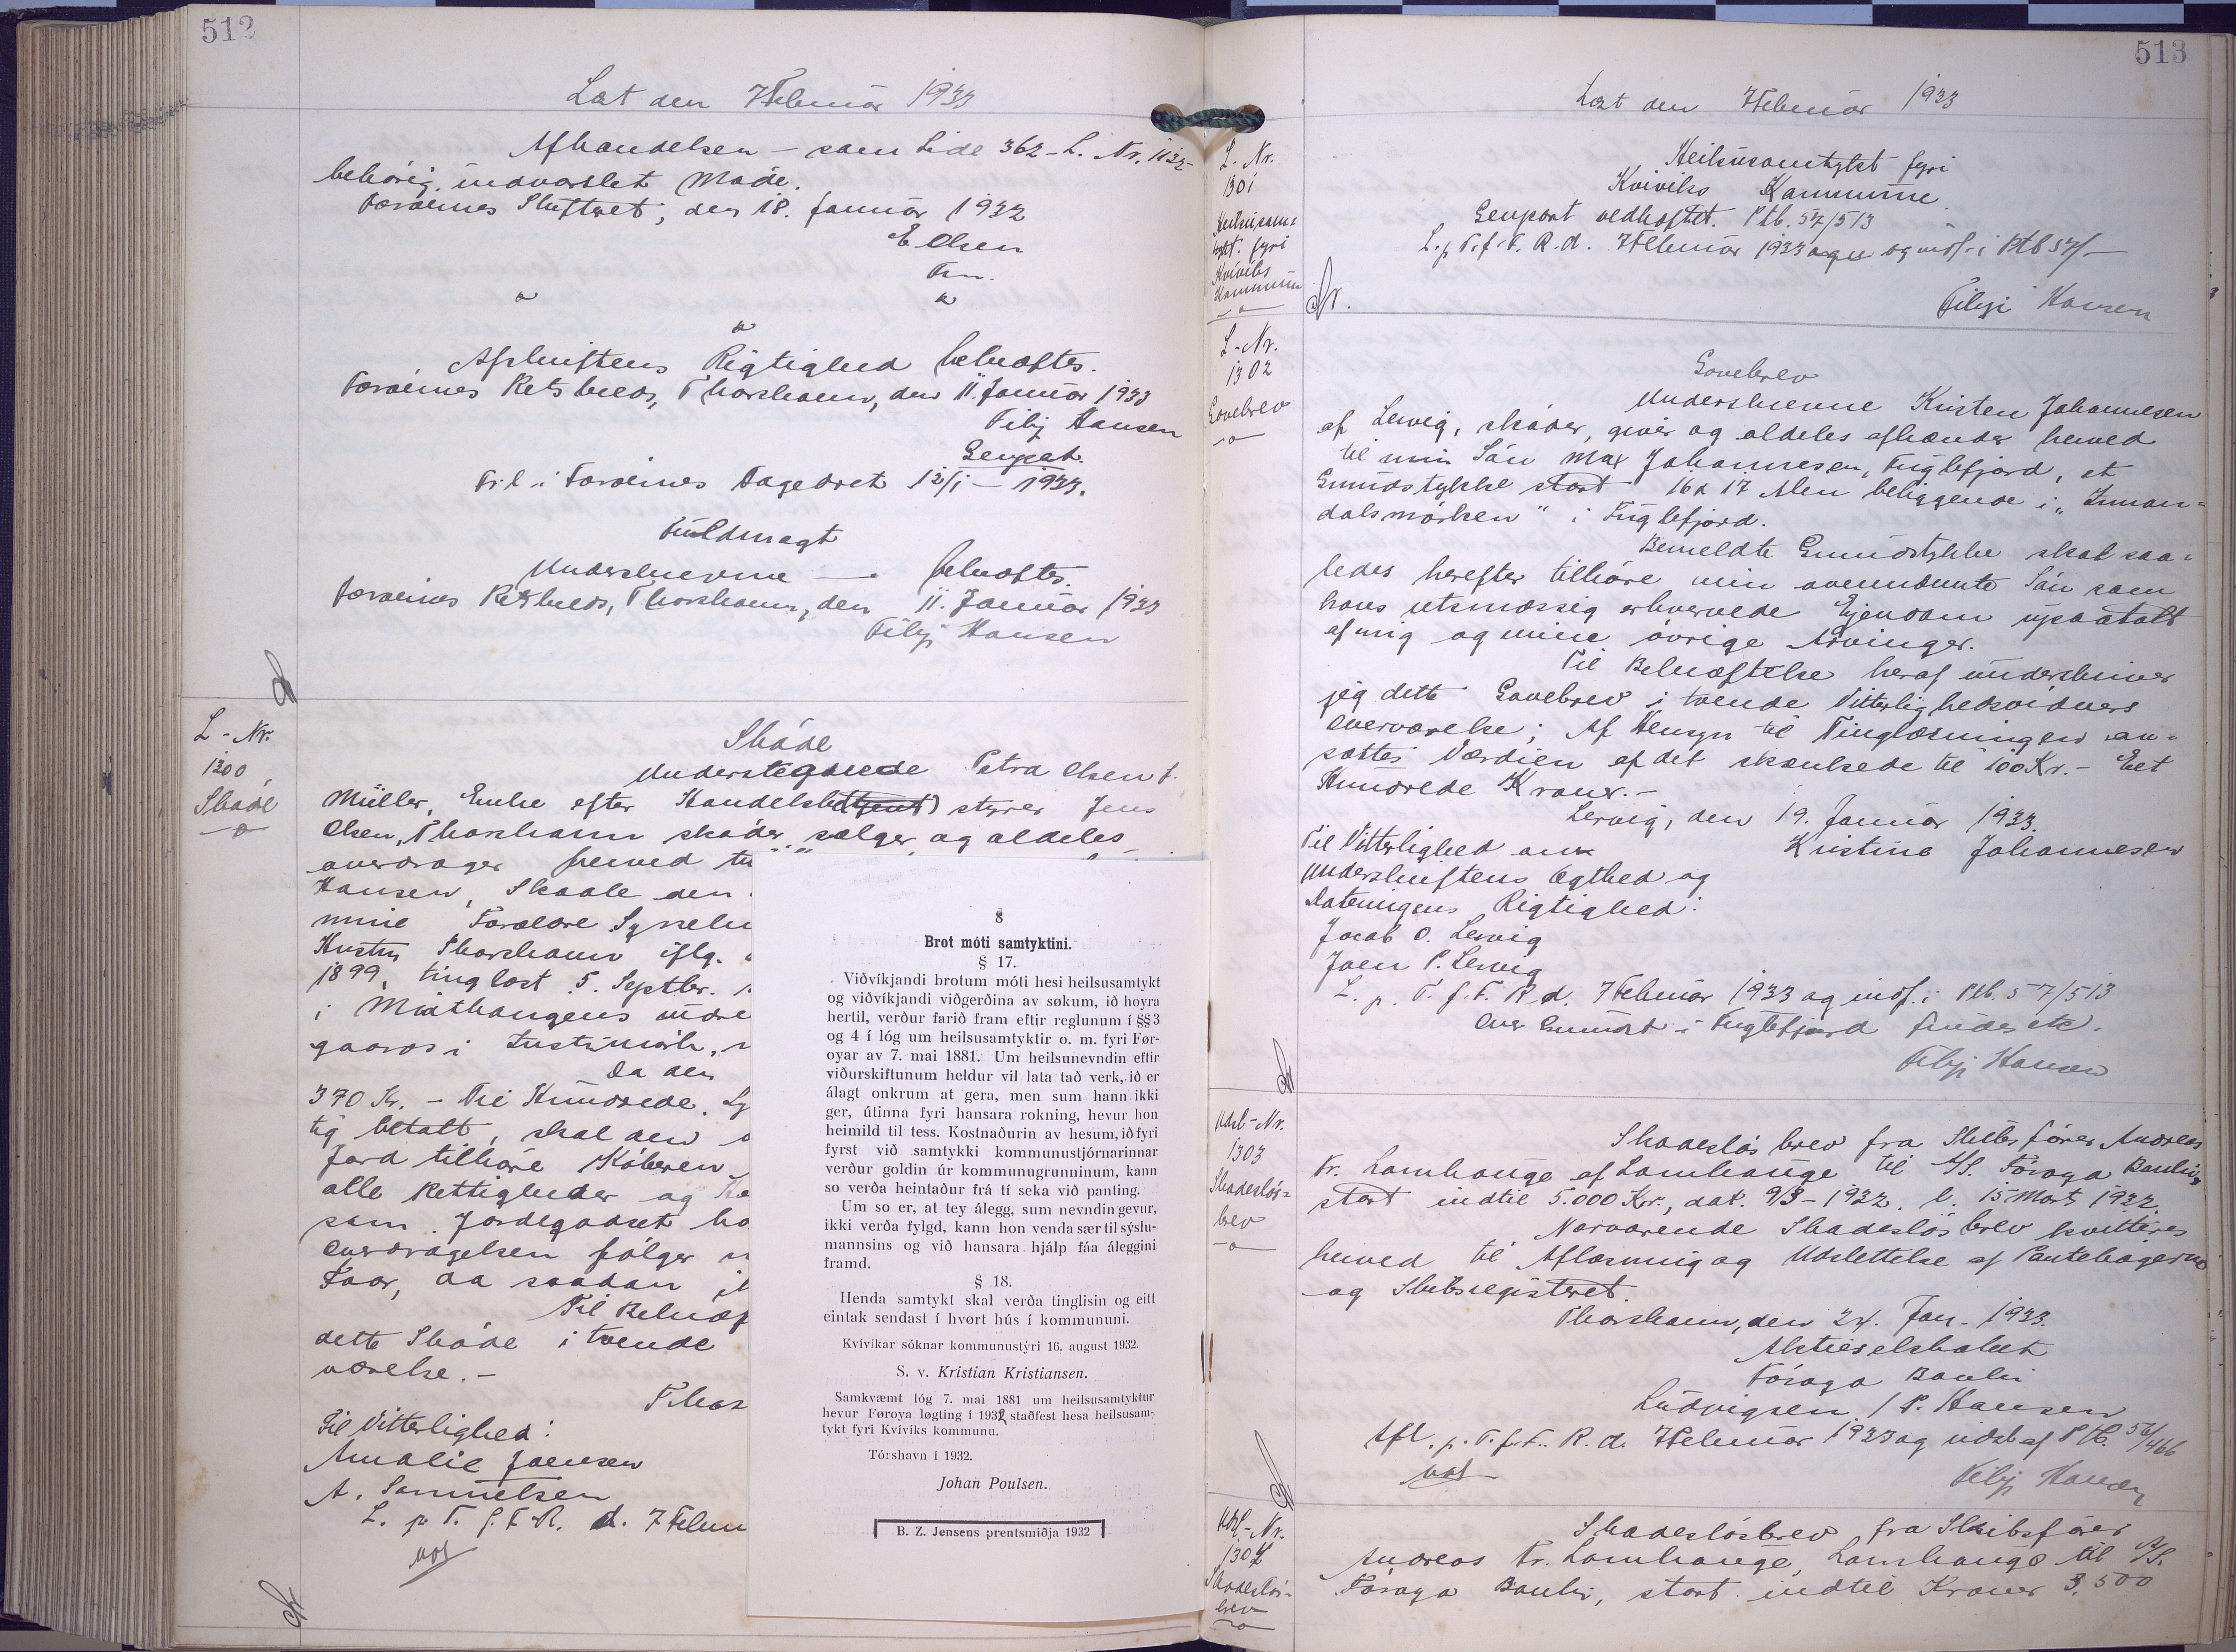 512
Læst den 7 Februar 1933
Afhændelsen - som Side 362 - L. Nr. 1122-
behörig indvarslet Made.
Færöernes Skifteret, den 18. Januar 1932
E Olsen
Fm.
"
"
"
Afskriftens Rigtighed bekræftes.
Færöernes Retskreds, Thorshavn, den 11. Januar 1933
Filip Hansen
Genpart.
Fr. l. i Færöernes Fogedret 12/1 - 1933.
Fuldmagt
Underskrevne — bekræftes.
Færöernes Retskreds, Thorshavn, den 11. Januar 1933
Filip Hansen
L - Nr.
1300
Sköde
Sköde
Undertegnede Petra Olsen f.
Müller, Enke efter Handelsbe(tjent) styrer Jens
Olsen, Thorshavn sköder, sælger og aldeles
overdrager herved til
Hansen, Skaale den
mine Forældre Sysselm
Hustru Thorshavn iflg.
1899, tinglæst 5. Septbr. 1
i Miðhangens indre
gaards i Justinörk,
Da den
370 Kr. - Tre Hundrede, Sy
tig betalt, skal den
Jord tilhöre Köberen
alle Rettigheder og He
som Jordegodset ha
Overdragelsen fölger
Faar, da saadan i
Til Bekræf
dette Sköde i tvende
værelse. -
Thor
Til Vitterlighed:
Amalie Joensen
A. Samuelsen
L. p. T. f. F. R. d. 7 Febru
8
Brot móti samtyktini.
§ 17.
Viðvíkjandi brotum móti hesi heilsusamtykt
og viðvíkjandi viðgerðina av søkum, ið hoyra
hertil, verður farið fram eftir reglunum í §§ 3
og 4 í lóg um heilsusamtyktir o. m. fyri Før-
oyar av 7. mai 1881. Um heilsunevndin eftir
viðurskiftunum heldur vil lata tað verk, ið er
álagt onkrum at gera, men sum hann ikki
ger, útinna fyri hansara rokning, hevur hon
heimild til tess. Kostnaðurin av hesum, ið fyri
fyrst við samtykki kommunustjórnarinnar
verður goldin úr kommunugrunninum, kann
so verða heintaður frá tí seka við panting.
Um so er, at tey álegg, sum nevndin gevur,
ikki verða fylgd, kann hon venda sær til sýslu-
mannsins og við hansara hjálp fáa áleggini
framd.
§ 18.
Henda samtykt skal verða tinglisin og eitt
eintak sendast í hvørt hús í kommununi.
Kvívíkar sóknar kommunustýri 16. august 1932.
S. v. Kristian Kristiansen.
Samkvæmt lóg 7. mai 1881 um heilsusamtyktur
hevur Føroya løgting í 1932 staðfest hesa heilsusam-
tykt fyri Kvívíks kommunu.
Tórshavn í 1932.
Johan Poulsen.
B. Z. Jensens prentsmiðja 1932
513
Læst den 7 Februar 1933
L. Nr.
1301
Heilsusam-
tykt. fyri
Kvívíks
Kommunu
Heilsusamtykt fyri
Kviviks Kommune.
Genpart vedhæftet. Ptb. 57/513
L. p. T. f. F. R. d. 7 Februar 1933 og indf. i Ptb 57/-
Filip Hansen
L - Nr.
1302
Gavebrev
Gavebrev
Underskrevne Kristen Johannesen
af Lervig, sköder, giver og aldeles afhænder herved
til min Sön Max Johannesen, Fuglefjord, et
Grundstykke stort 16 x 17 Alen beliggende i "Innan-
dalsmörken" i Fuglefjord.
Bemeldte Grundstykke skal saa-
ledes herefter tilhöre min ovennævnte Sön som
hans retsmæssig erhvervede Ejendom upaatalt
af mig og mine övrige Arvinger.
Til Bekræftelse heraf underskriver
jeg dette Gavebrev i tvende Vitterlighedsvidners
Overværelse; Af Hensyn til Tinglæsningen an-
sættes Værdien af det skænkede til 100 Kr. - Eet
Hundrede Kroner. -
Lervig, den 19. Januar 1933.
Til Vitterlighed om
Kristine Johannesen
Underskriftens Ægthed og
Dateringens Rigtighed:
Jacob O. Lervig
Joen P. Lervig
L. p. T. f. F. R. d. 7 Februar 1933 og indf. i Ptb. 57/513
Over Grundst. i Fuglefjord findes etc.
Filip Hansen
Udsl-Nr.
1303
Skadeslös-
brev
Skadeslösbrev fra Skibsförer Andreas
Fr. Lamhauge af Lamhauge til A/S. Föroya Banki,
stort indtil 5.000 Kr., dat. 9/3 - 1932. l. 15 Marts 1932.
Nærværende Skadeslösbrev kvitteres
herved til Aflæsning og Udslettelse af Pantebögerne
og Skibsregisteret.
Thorshavn, den 24. Jan. 1933.
Aktieselskabet
Föroya Banki
Ludvigsen / P. Hansen
Afl. p. T. f. F. R. d. 7 Februar 1933 og udsl. af Ptb. 56/466
Filip Hansen
Udsl-Nr.
1304
Skadeslös-
brev
Skadeslösbrev fra Skibsförer
Andreas Fr. Lamhauge, Lamhauge til A/S.
Föroya Banki, stort indtil Kroner 3.500